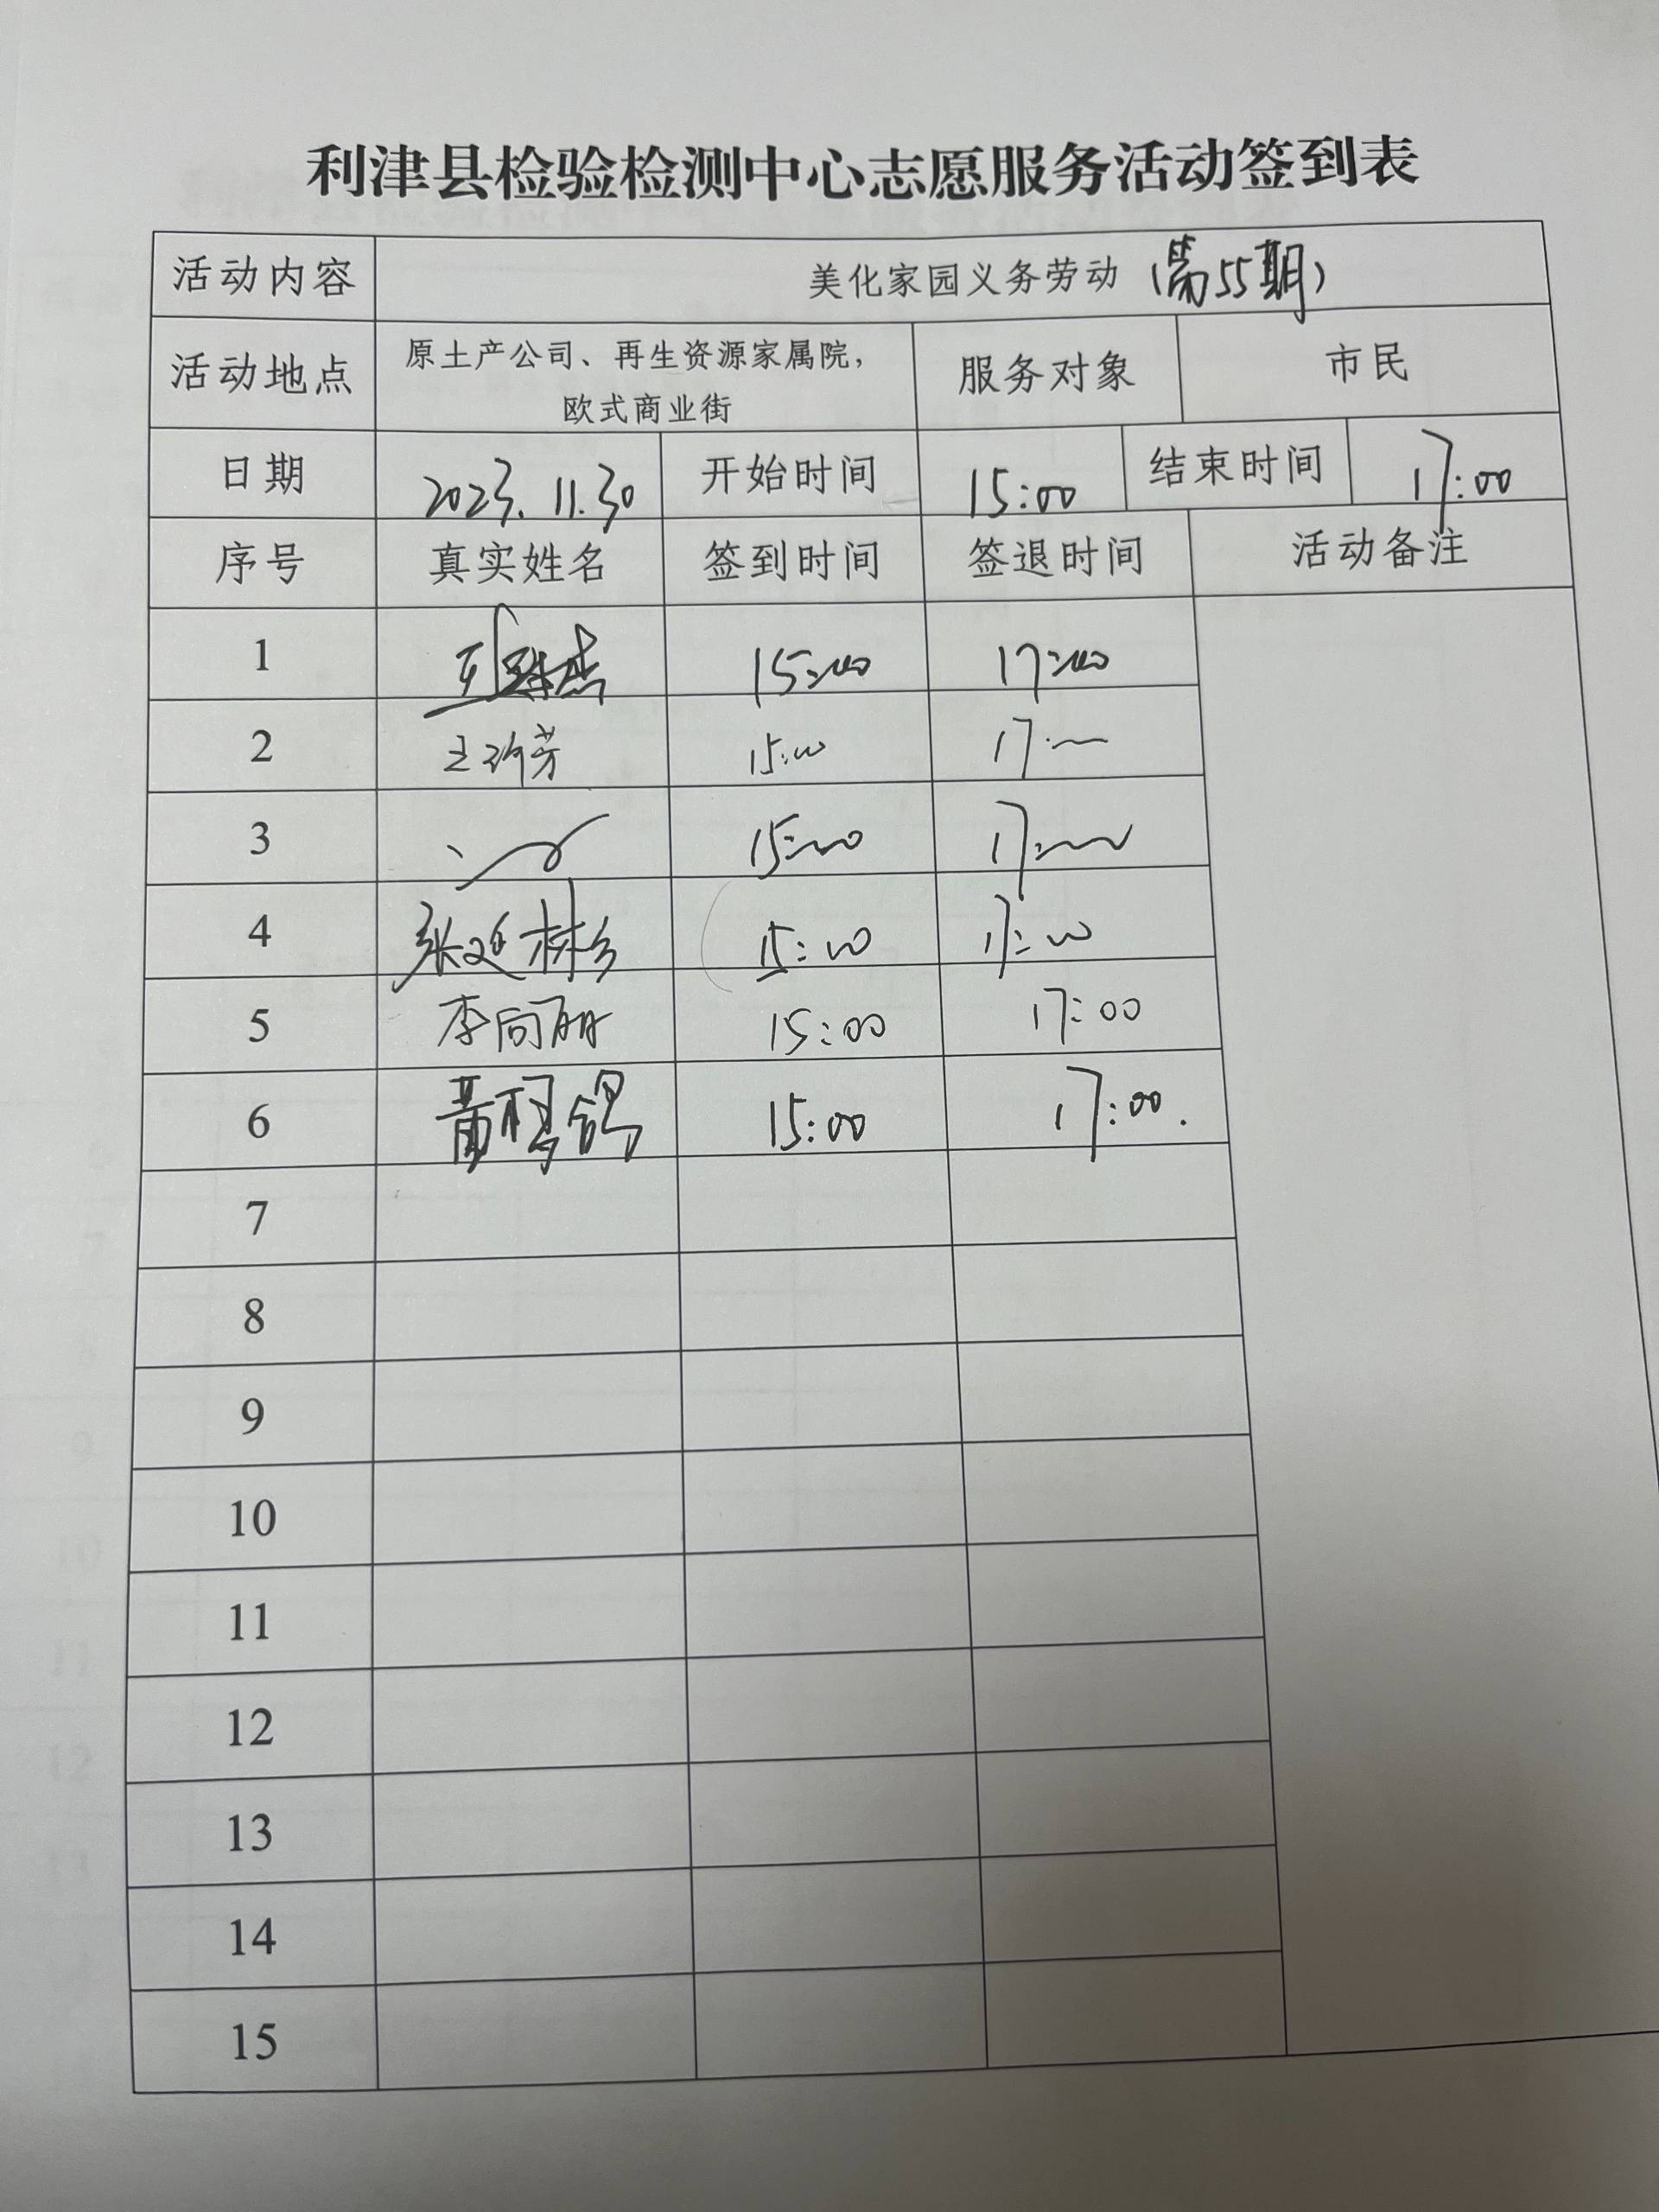 利津县检验检测中心志愿服务活动签到表
活动内容 美化家园义务劳动（第55期）
活动地点 原土产公司、再生资源家属院， 服务对象 市民
欧式商业街
日期 2023.11.30 开始时间 15:00 结束时间 17:00
序号 真实姓名 签到时间 签退时间 活动备注
1 15:00 17:00
2 15:00 17:
3 15:00 17:
4 张延彬 15:00 17:00
5 李向丽 15:00 17:00
6 15:00 17:00.
7
8
9
10
11
12
13
14
15